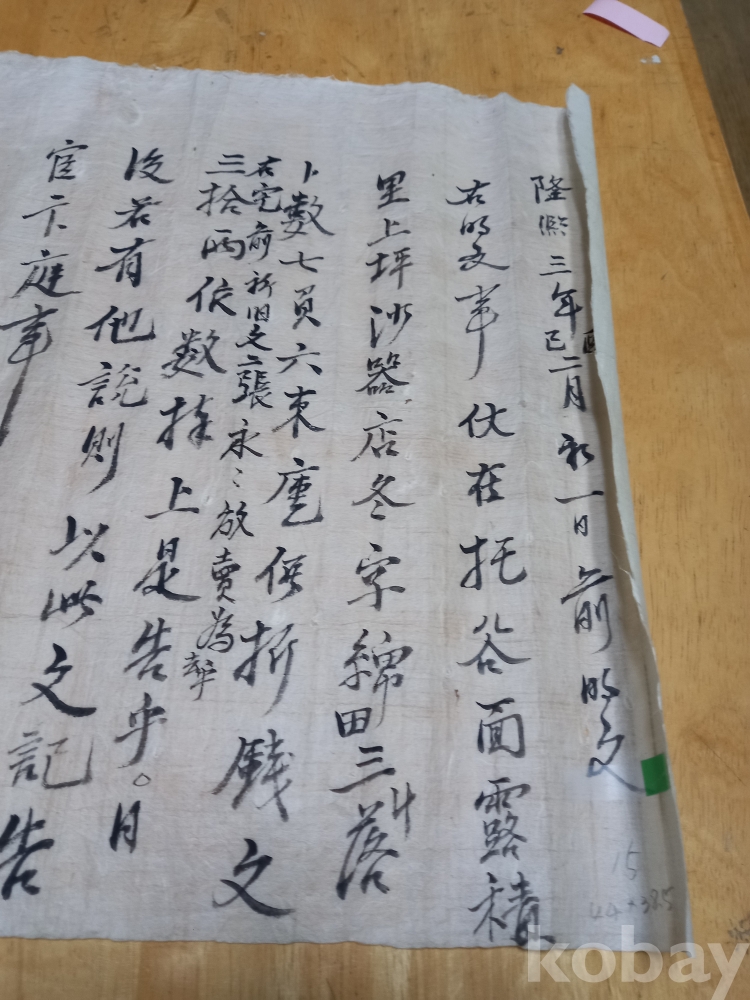 隆熙三年己酉二月初一日前明文
右明文事伏在托谷面露積
里上坪沙器店冬字綿田三斗落
卜數七負六束庫価折錢文
右宅前新旧文二張永〻放賣為去乎
三拾兩依數捧上是告乎○日
後若有他說則以此文記告
官卞庭事
15
44+38.5
kobay